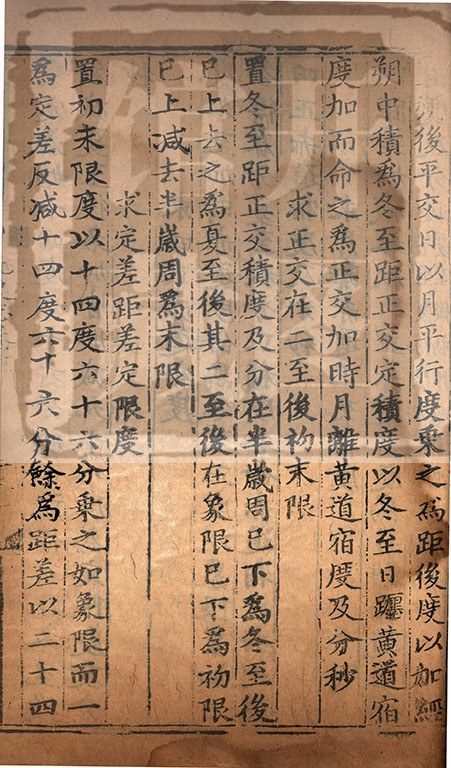 後平交日以月平行度乘之爲距後度以加經
朔中積爲冬至距正交定積度以冬至日躔黃道宿
度加而命之爲正交加時月離黃道宿度及分秒
求正交在二至後初末限
置冬至距正交積度及分在半歲周已下爲冬至後
已上去之爲夏至後其二至後在象限已下爲初限
已上減去半歲周爲末限
求定差距差定限度
置初末限度以十四度六十六分乘之如象限而一
爲定差反減十四度六十六分餘爲距差以二十四